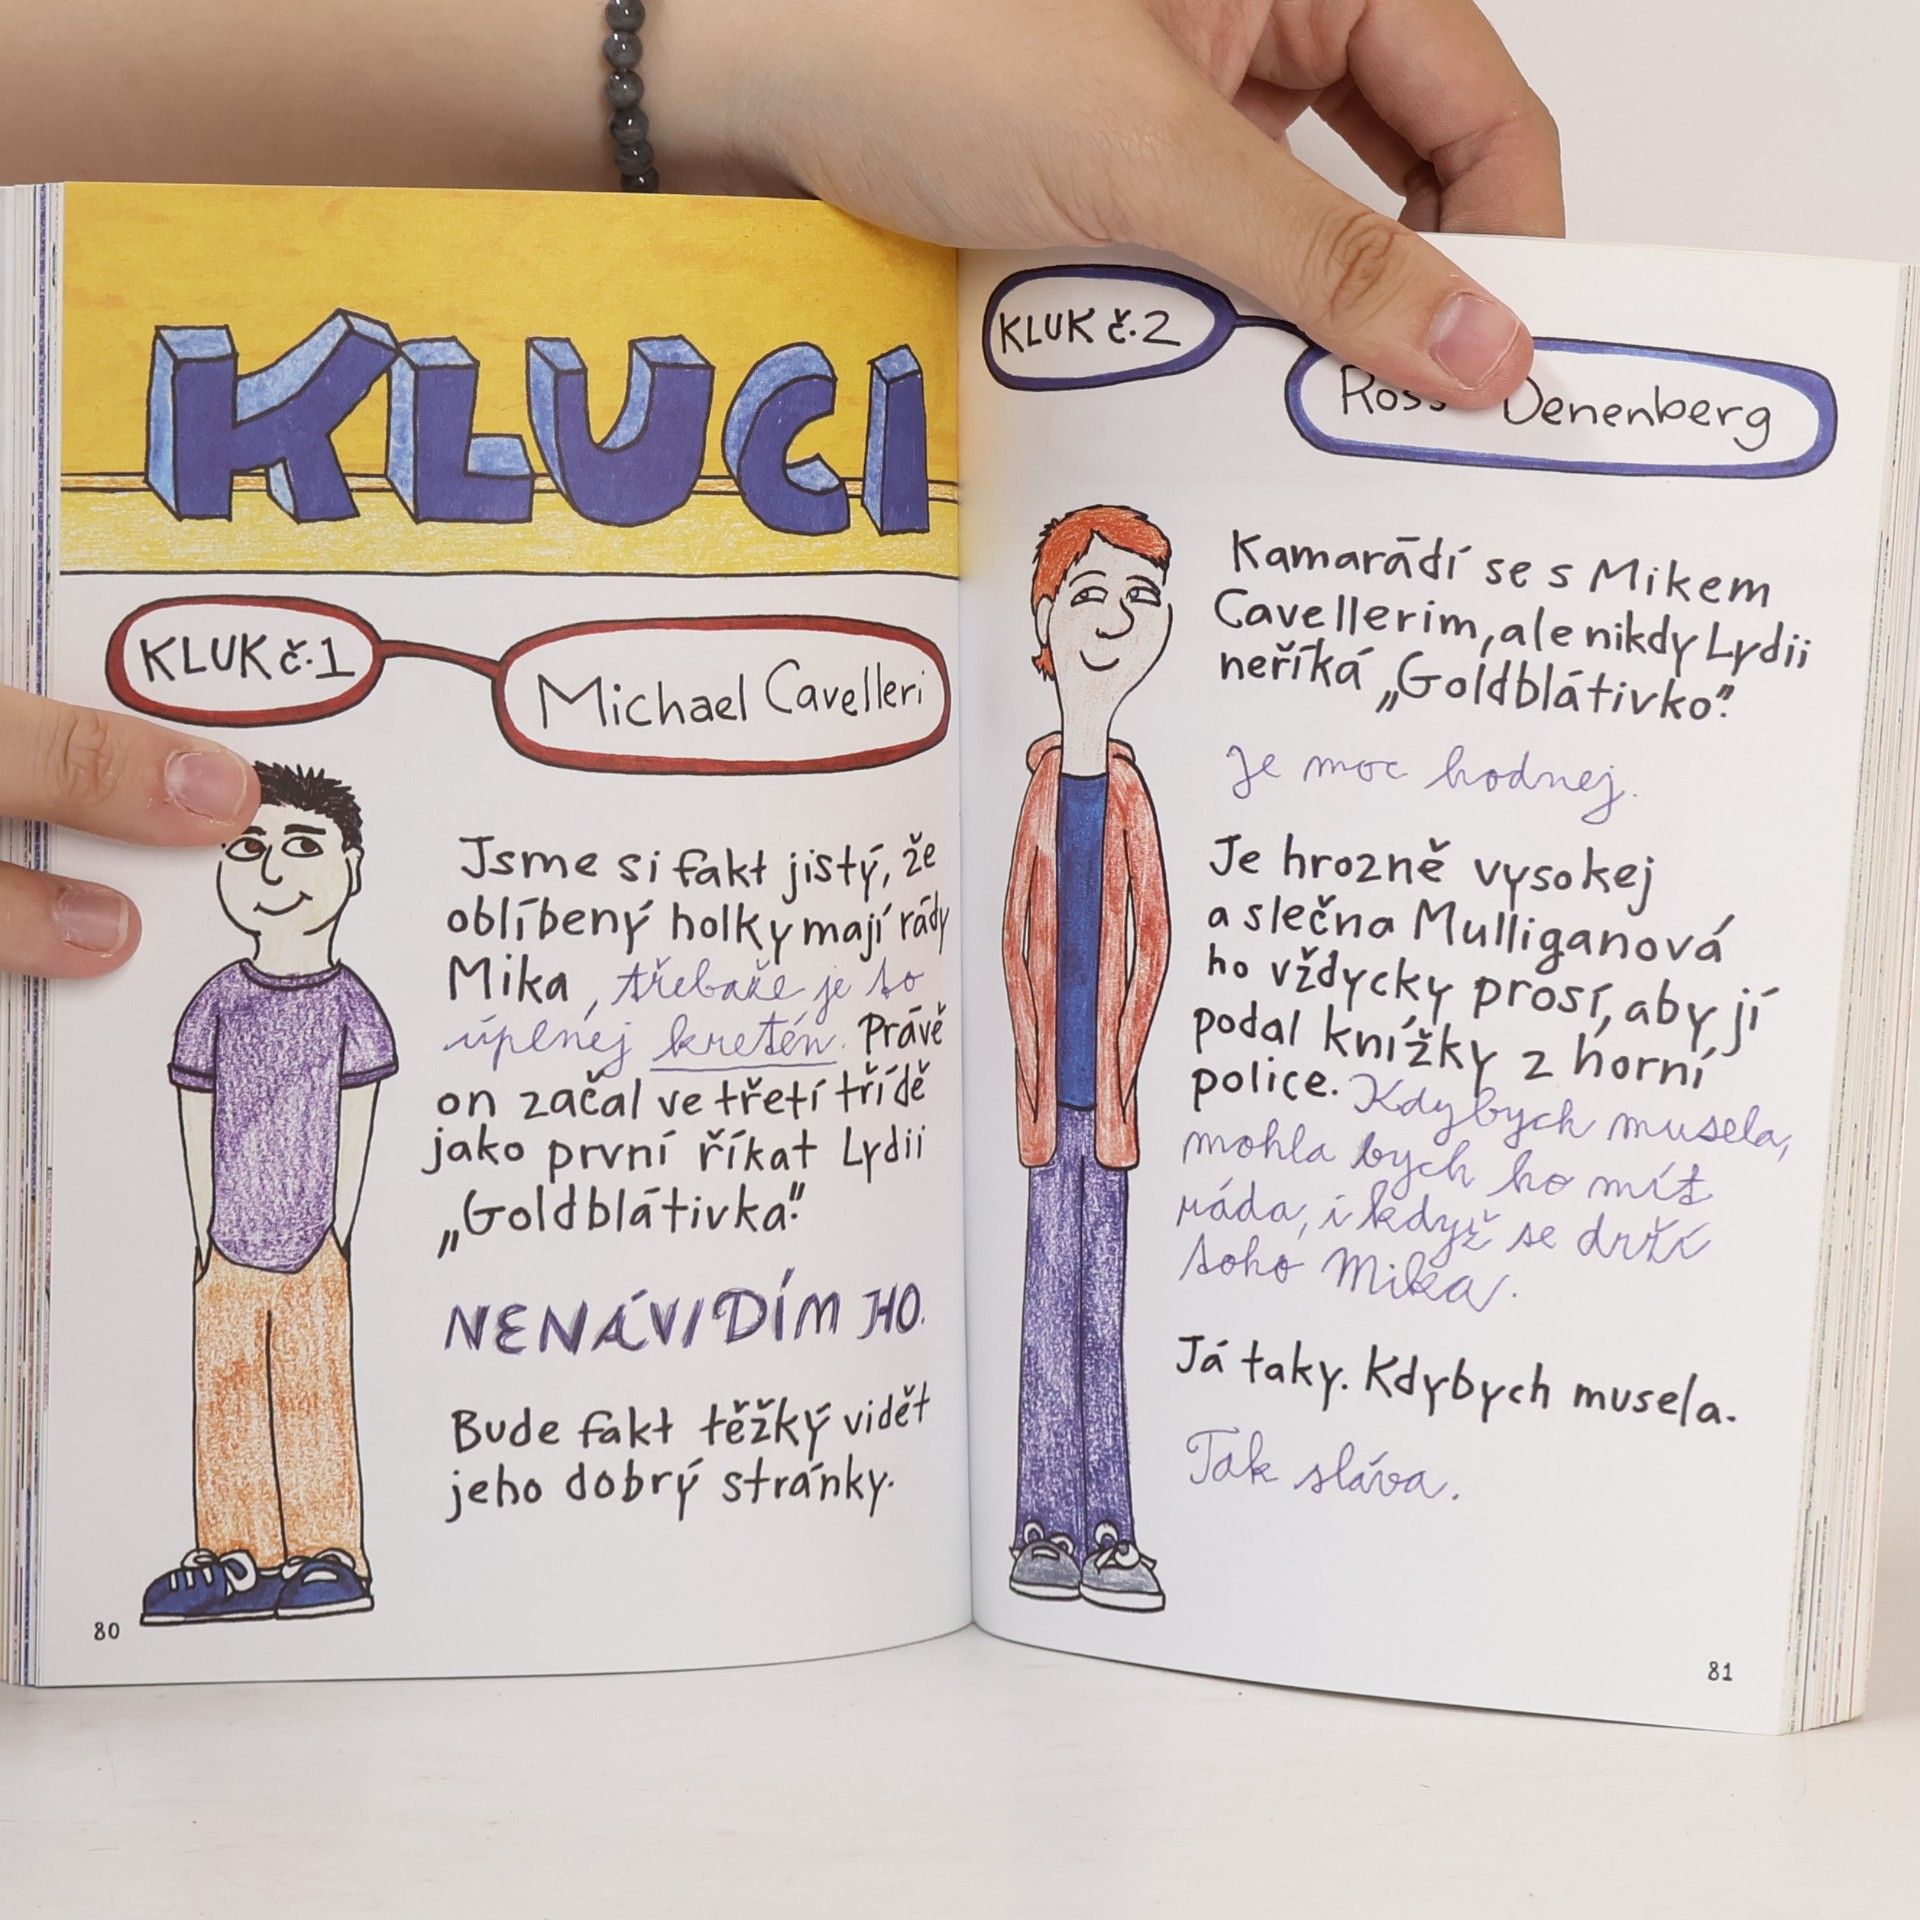 KLUCI
KLUK č.1
Michael Cavelleri
Jsme si fakt jistý, že
oblíbený holky mají rády
Mika, třebaže je to
úplnej kretén. Právě
on začal ve třetí třídě
jako první říkat Lydii
„Goldblátivka".
NENÁVIDÍM HO.
Bude fakt těžký vidět
jeho dobrý stránky.
80
KLUK č.2
Denenberg
Kamarádí se s Mikem
Cavellerim, ale nikdy Lydii
neříká „Goldblátivko".
Je moc hodnej.
Je hrozně vysokej
a slečna Mulliganová
ho vždycky prosí, aby jí
podal knížky z horní
police. Kdybych musela,
mohla bych ho mít
ráda, i když se drží
toho Mika.
Já taky. Kdybych musela.
Tak sláva.
81